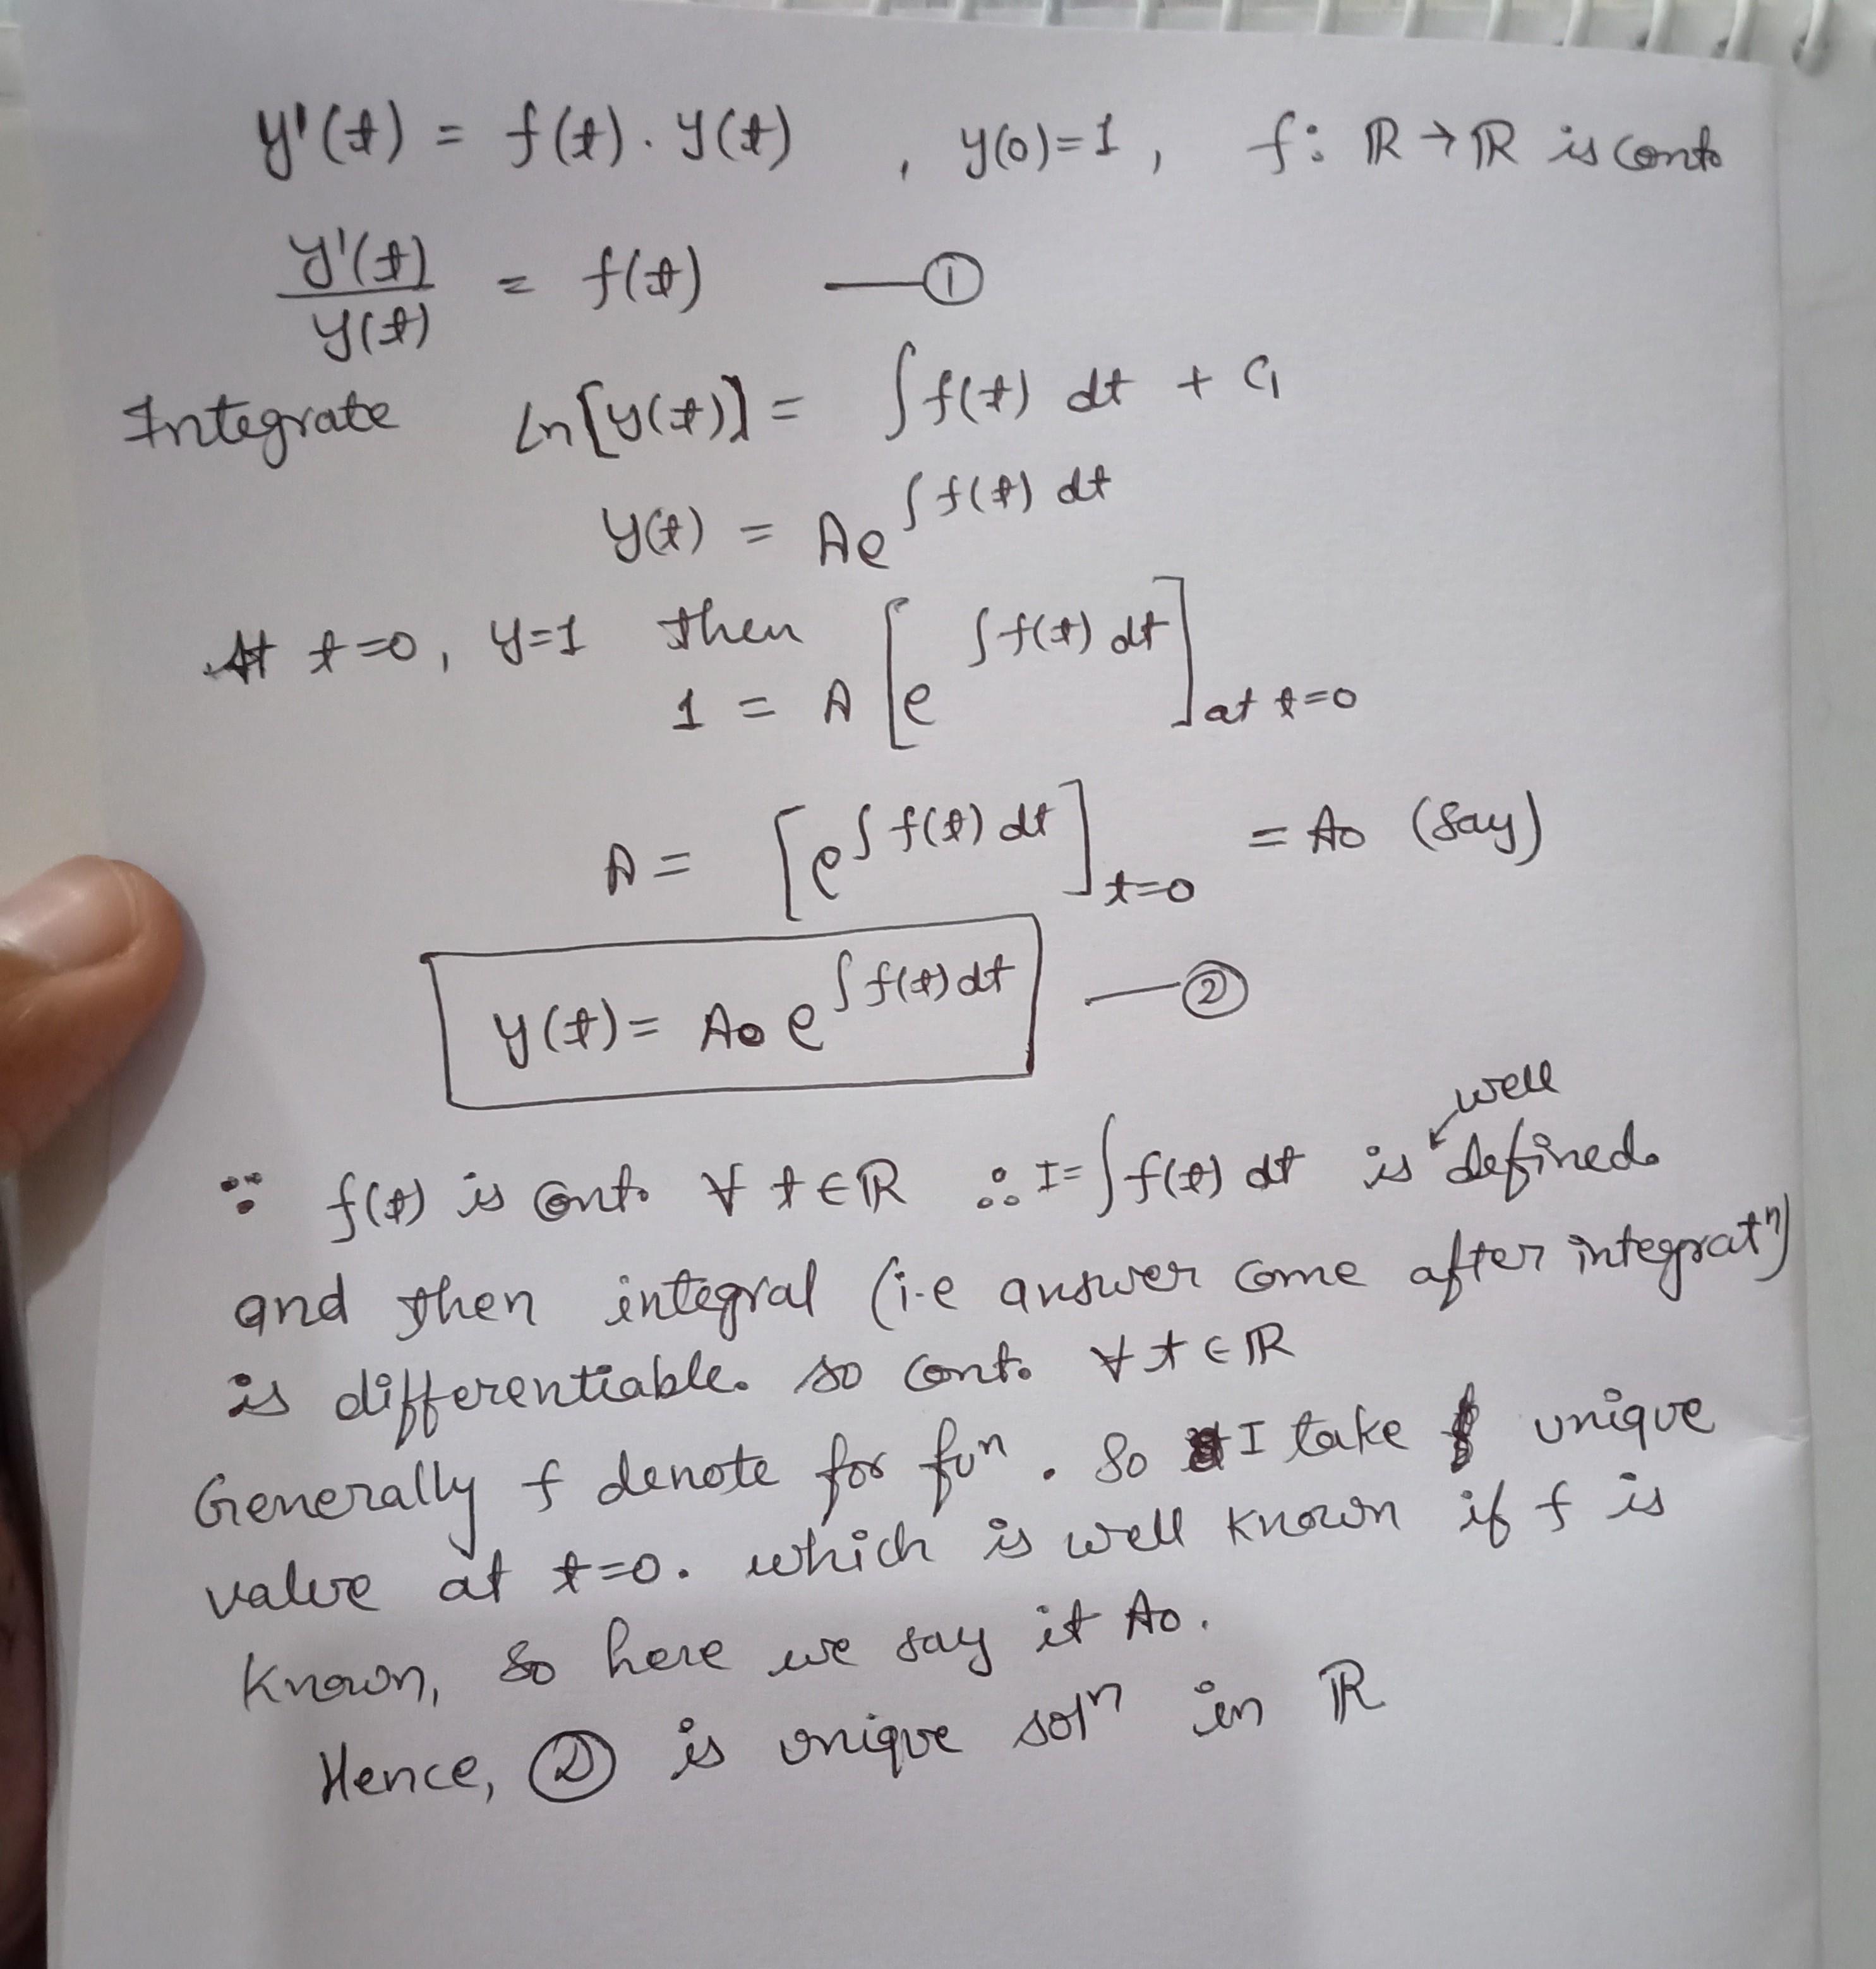 y'(t) = f(t). y(t) , y(0)=1, f: ℝ→ℝ is cont.
y'(t)/y(t) = f(t) —①
Integrate Ln[y(t)] = ∫f(t) dt + C₁
y(t) = Ae^{∫f(t) dt}
At t=0, y=1 then
1 = A [e^{∫f(t) dt}]at t=0
A = [e^{∫f(t) dt}]t=0 = A0 (say)
y(t) = A0 e^{∫f(t)dt} —②
well
∵ f(t) is cont. ∀ t∈ℝ ∴ I=∫f(t) dt is defined.
and then integral (i.e answer come after integratⁿ)
is differentiable. so cont. ∀ t∈ℝ
Generally f denote for fuⁿ. So I take unique
value at t=0. which is well known if f is
known, so here we say it A0.
Hence, ② is unique solⁿ in ℝ